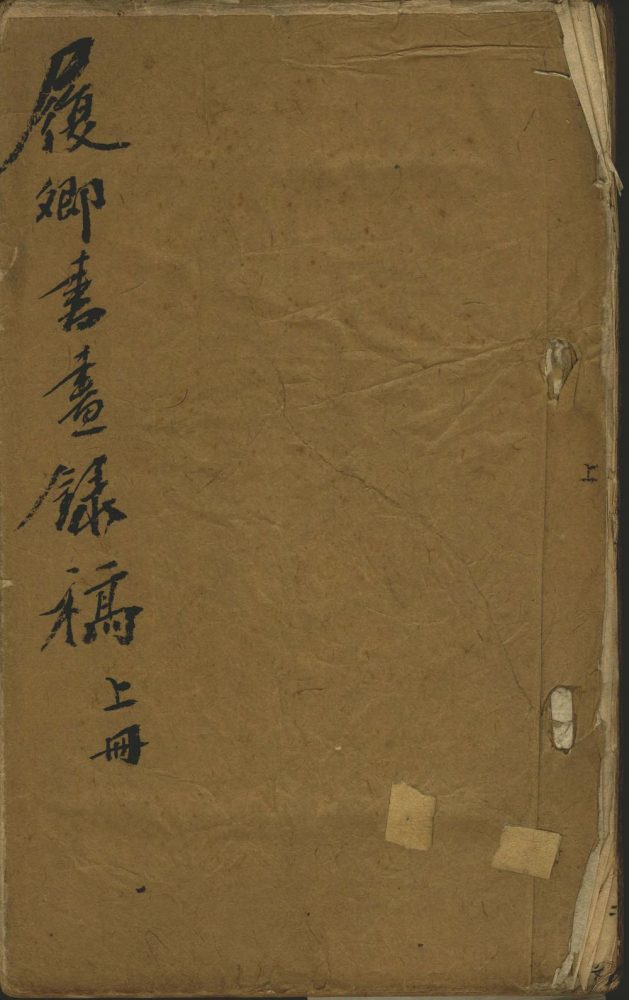 履卿書畫錄稿
上冊
上